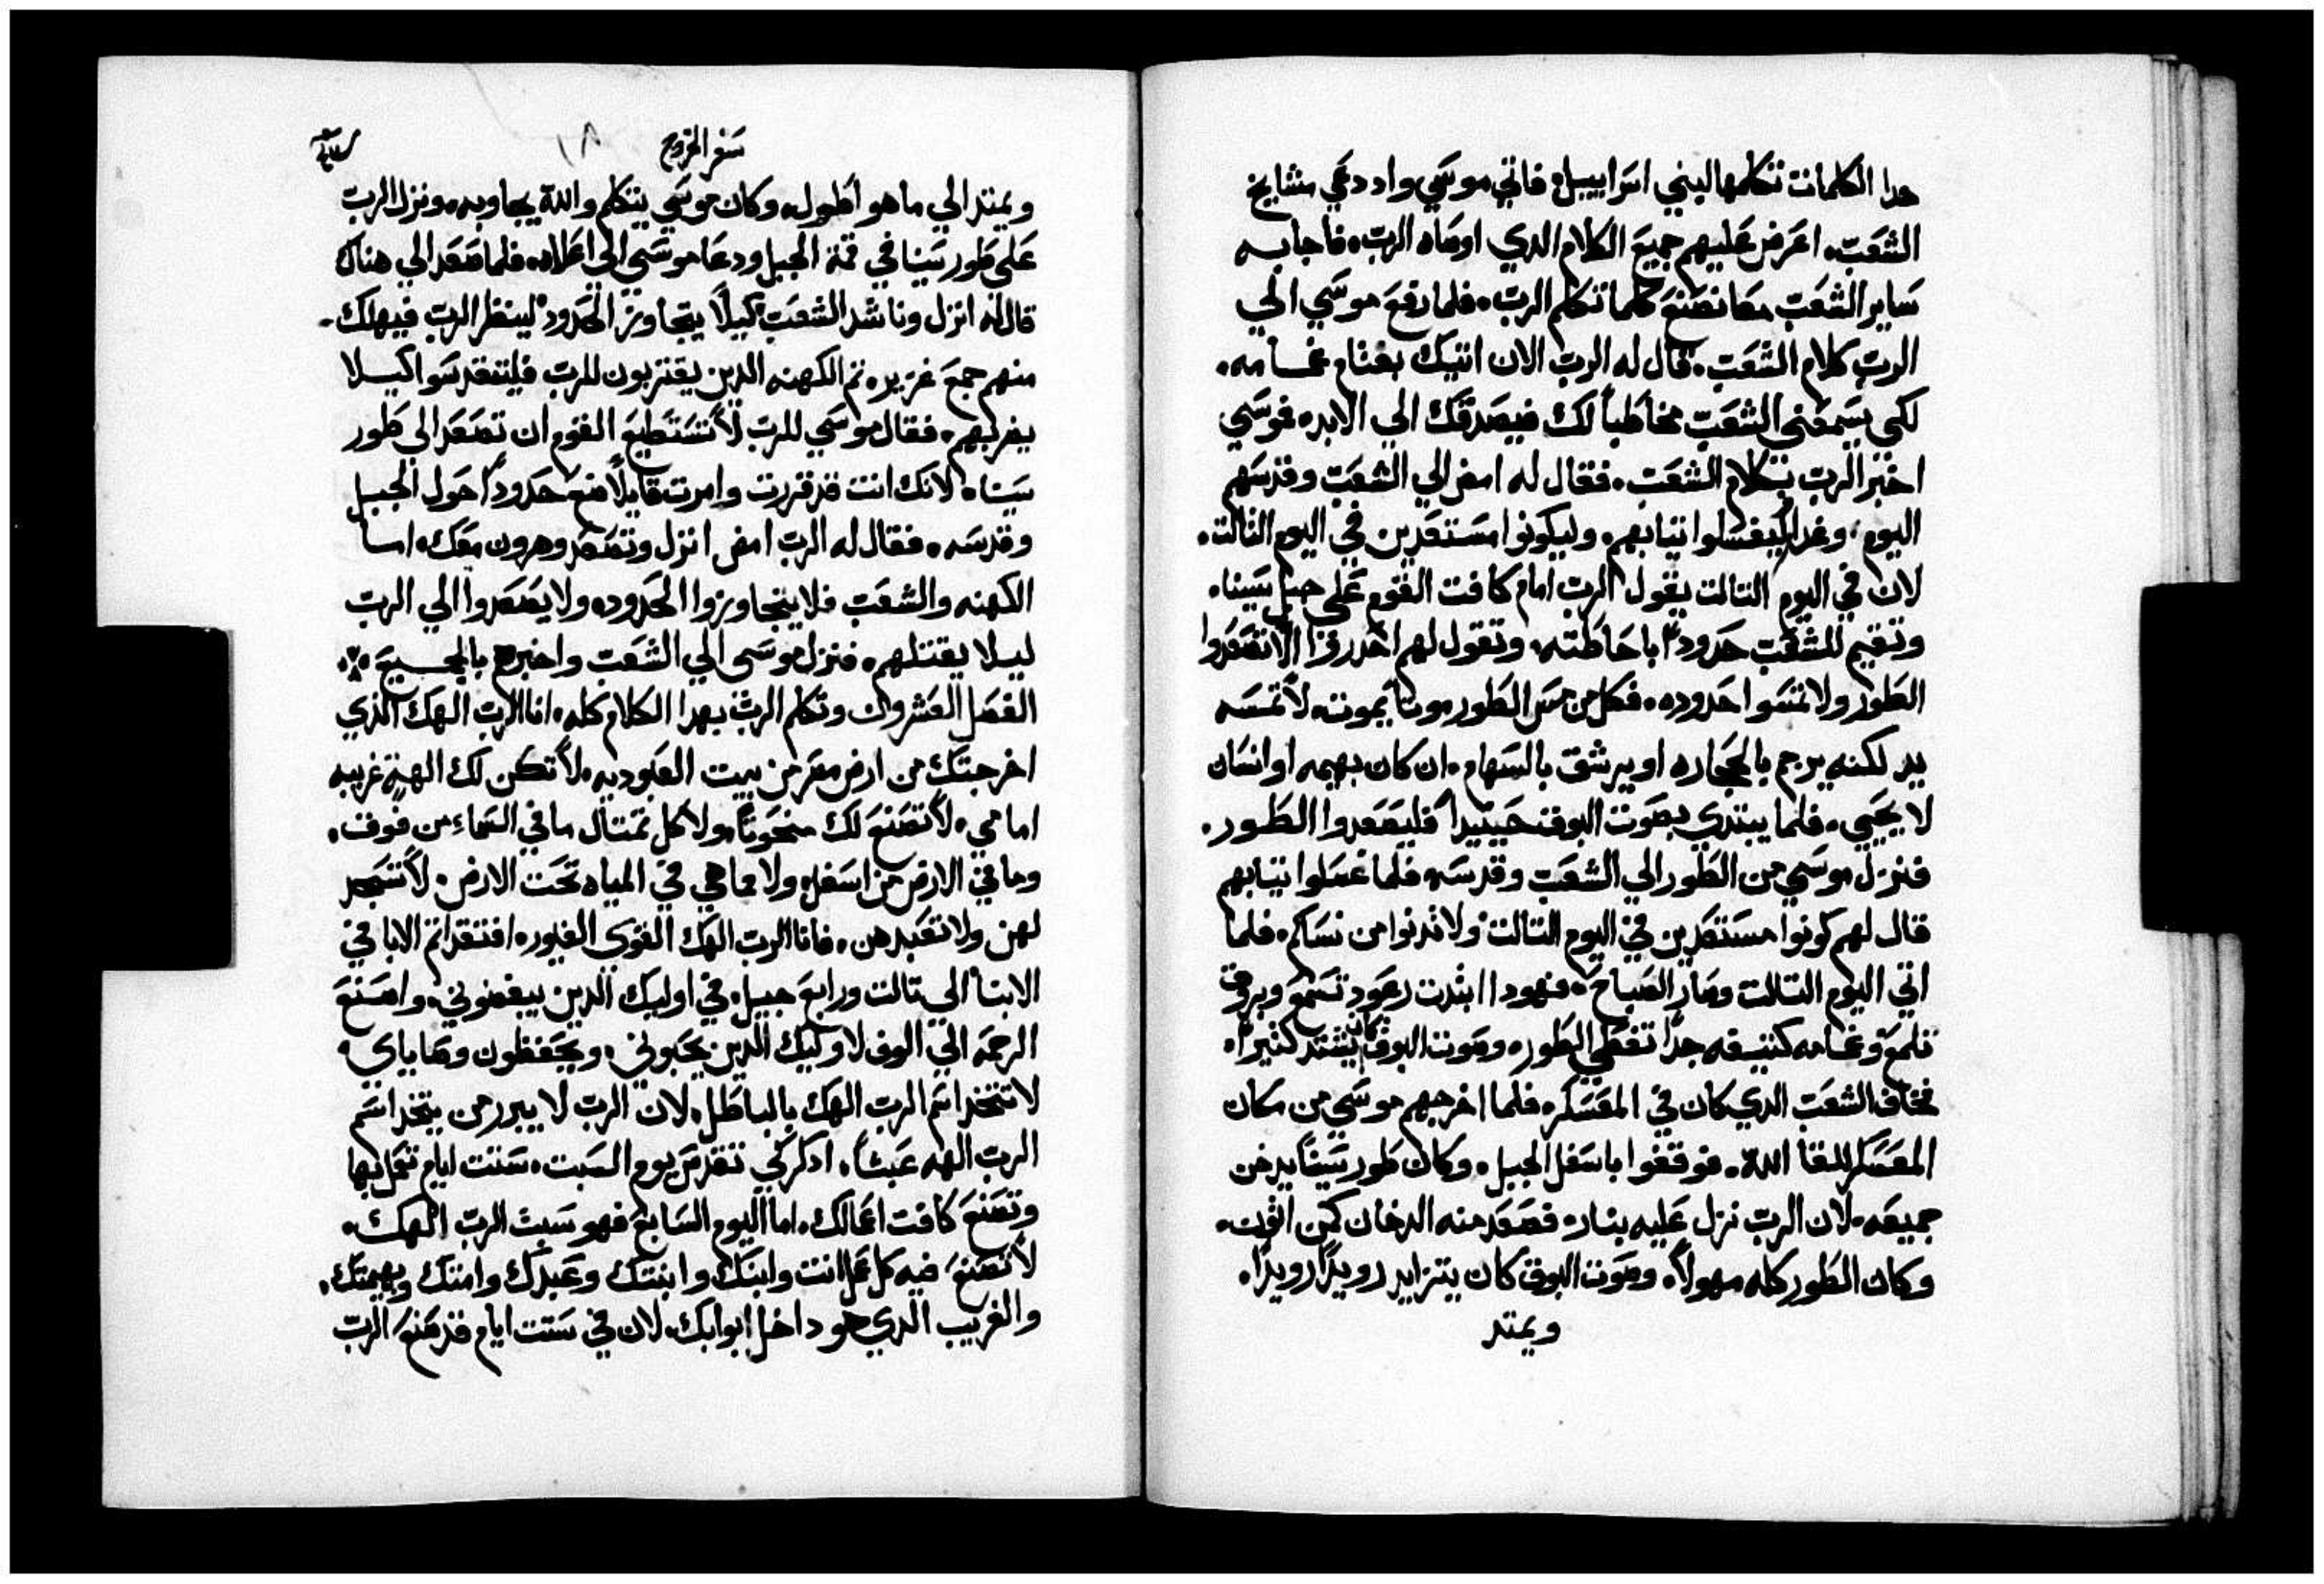 هدا الكلمات تتكلمها لبني اسراييل. فاتي موسي واد دعي مشايخ
الشعب. اعرض عليهم جميع الكلام الدي اوصاه الرب. فاجابه
ساير الشعب معا نصنع كلما تتكلم الرب. فلما رفع موسي الي
الرب كلام الشعب. قال له الرب الان اتيك بغتام غمامه.
لكي يسمعني الشعب مخاطباً لك فيصدقك الي الابد. فوسي
اخبر الرب بكلام الشعب. فقال له امض الي الشعب وقدسهم
اليوم. وغدا ليغسلوا تيابهم. وليكونوا مستعدين في اليوم التالت.
لان في اليوم التالت يقول الرب امام كافت القوم علي جبل سينا.
وتقيم للشعب حدوداً باحاطته. وتقول لهم احدروا الا تصعدوا
الطور ولا تمسوا حدوده. فكل من مس الطور موتاً يموت. لا تمسه
يد لكنه يرجم بالحجاره او يرشق بالسهام. ان كان بهيمه او انسان
لا يحيي. فلما يبتدي بصوت البوق حينيداً فليصعدوا الطور.
فنزل موسي من الطور الي الشعب وقدسه فلما غسلوا تيابهم
قال لهم كونوا مستعدين في اليوم التالت ولا تدنوا من نساكم. فلما
اتي اليوم التالت وصار الصباح. فهودا ابتدت رعود تسمع وبروق
تلمع وغمامه كتيفه جداً تغطي الطور. وصوت البوق كان يشتد كثيراً.
فخاف الشعب الدي كان في المعسكر. فلما اخرجهم موسي من مكان
المعسكر للقا الله. فوقفوا باسفل الجبل. وكان طور سينا يدخن
جميعه. لان الرب نزل عليه بنار. فصعد منه الدخان كمن اتون.
وكان الطور كله مهولاً. وصوت البوق كان يتزايد رويداً رويداً.
ويمتد
سفر الخروج ١٨
ويمتد الي ما هو اطول. وكان موسي يتكلم والله يجاوبه. ونزل الرب
علي طور سينا في قمة الجبل ودعا موسي الي اعلاه. فلما صعد الي هناك
قال له انزل وناشد الشعب كيلا يتجاوز الحدود لينظر الرب فيهلك
منهم جمع غزير. تم الكهنه الدين يقتربون للرب فليتقدسوا كيلا
يضربهم. فقال موسي للرب لا تستطيع القوم ان تصعد الي طور
سينا. لانك انت قد قررت وامرت قايلاً ضع حدوداً حول الجبل
وقدسه. فقال له الرب امض انزل وتصعد وهرون معك. اما
الكهنه والشعب فلا يتجاوزوا الحدود. ولا يصعدوا الي الرب
ليلا يقتلهم. فنزل موسي الي الشعب واخبرهم بالجميع.
الفصل العشرون وتكلم الرب بهدا الكلام كله. انا الرب الهك الذي
اخرجتك من ارض مصر من بيت العبوديه. لا تكن لك الهة غريبه
امامي. لا تصنع لك منحوتاً. ولا كل تمتال ما في السماء من فوق.
وما في الارض من اسفل. ولا مما هي في المياه تحت الارض. لا تسجد
لهن ولا تعبدهن. فانا الرب الهك القوي الغيور. افتقد اتم الابا في
الابنا الي تالت ورابع جيل. في اوليك الدين يبغضوني. واصنع
الرحمه الي الوف لاوليك الدين يحبوني. ويحفظون وصاياي.
لا تتخد اسم الرب الهك بالباطل. لان الرب لا يبرر من يتخد اسم
الرب الهه عبثاً. ادكر كي تقدس يوم السبت. ستت ايام تعمل بها
وتصنع كافت اعمالك. اما اليوم السابع فهو سبت الرب الهك.
لا تصنع فيه كل عمل انت وابنك وابنتك وعبدك وامتك وبهيمتك.
والغريب الدي هو داخل ابوابك. لان في ستت ايام قد صنع الرب